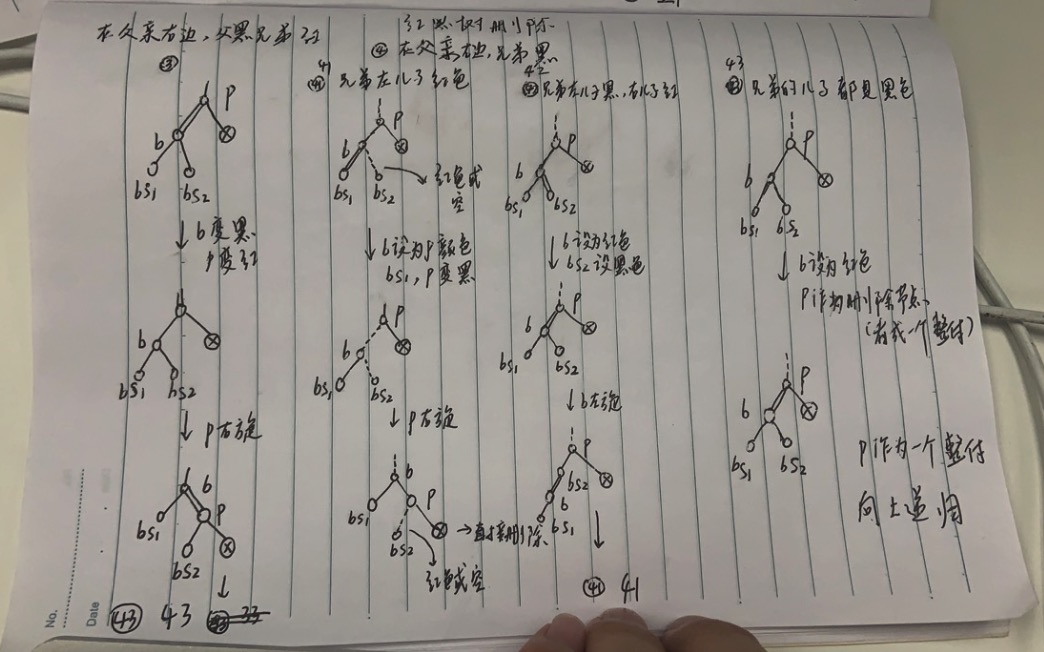 红黑树删除
在父亲右边，父黑兄弟红
③
b
p
bs₁
bs₂
b变黑
p变红
b
bs₁
bs₂
p右旋
b
bs₁
p
bs₂
43 43
④ 在父亲右边，兄弟黑
41
兄弟左儿子红色
p
b
bs₁
bs₂
红色或
空
b设为p颜色
bs₁，p变黑
p
b
bs₁
bs₂
p右旋
b
bs₁
p
bs₂
→直接删除
红色或空
42
兄弟左儿子黑，右儿子红
p
b
bs₁
bs₂
b设为红色
bs₂设黑色
p
b
bs₁
bs₂
b左旋
p
bs₂
b
bs₁
41 41
43
兄弟的儿子都是黑色
p
b
bs₁
bs₂
b设为红色
P作为删除节点
（看成一个整体）
p
b
bs₁
bs₂
P作为一个整体
向上递归
No.
Date